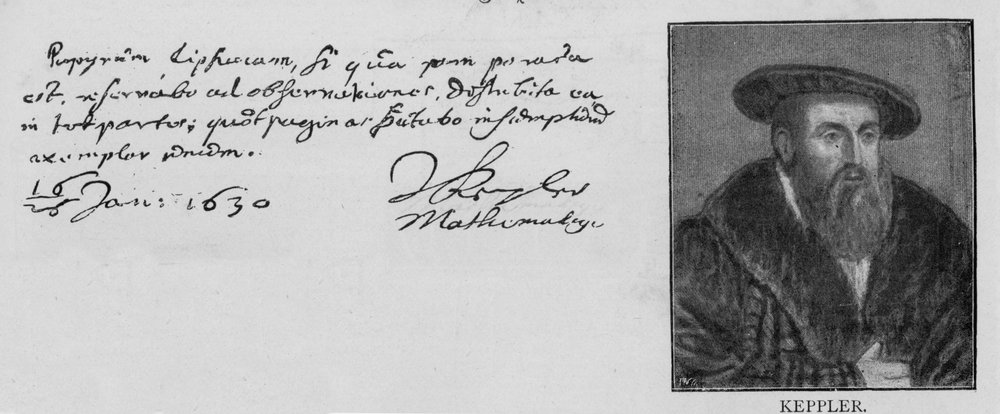 Papyrum Lipsicam, si qua jam parata
est, reservabo ad observationes, distributa ea
in tot partes; quot paginas
exemplar unum.
16/26 Jan: 1630
J Keppler
Mathematicus
KEPPLER.